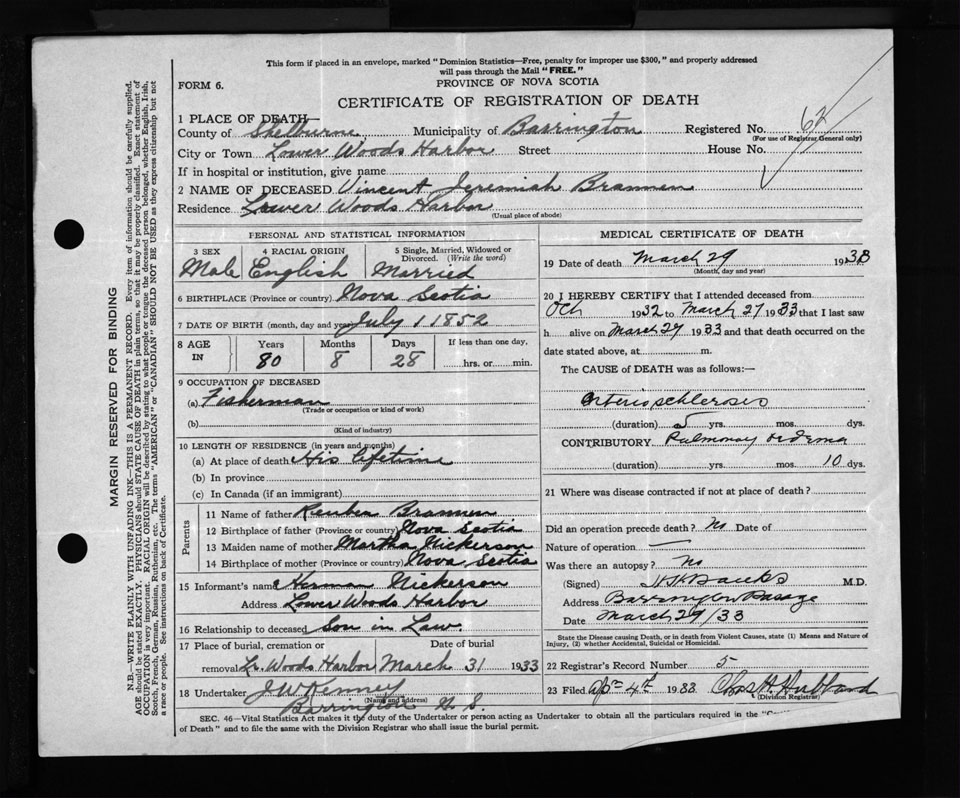 This form if placed in an envelope, marked " Dominion Statistics—Free, penalty for improper use $300," and properly addressed
will pass through the Mail "FREE."
FORM 6.
PROVINCE OF NOVA SCOTIA
CERTIFICATE OF REGISTRATION OF DEATH
1 PLACE OF DEATH—
County of Shelburne Municipality of Barrington Registered No. 62
(For use of Registrar General only)
City or Town Lower Woods Harbor Street House No.
If in hospital or institution, give name
2 NAME OF DECEASED Vincent Jeremiah Brannen
Residence Lower Woods Harbor
(Usual place of abode)
PERSONAL AND STATISTICAL INFORMATION
3 SEX Male
4 RACIAL ORIGIN English
5 Single, Married, Widowed or Divorced. (Write the word) Married
6 BIRTHPLACE (Province or country) Nova Scotia
7 DATE OF BIRTH (month, day and year) July 1 1852
8 AGE IN Years 80 Months 8 Days 28 If less than one day, hrs. or min.
9 OCCUPATION OF DECEASED
(a) Fisherman
(Trade or occupation or kind of work)
(b)
(Kind of industry)
10 LENGTH OF RESIDENCE (in years and months)
(a) At place of death His lifetime
(b) In province
(c) In Canada (if an immigrant)
Parents
11 Name of father Reuben Brannen
12 Birthplace of father (Province or country) Nova Scotia
13 Maiden name of mother Martha Nickerson
14 Birthplace of mother (Province or country) Nova Scotia
15 Informant's name Herman Nickerson
Address Lower Woods Harbor
16 Relationship to deceased Son in Law.
17 Place of burial, cremation or Date of burial
removal Lr. Woods Harbor March 31 1933
18 Undertaker J W Kenney
(Name and address)
Barrington N. S.
MEDICAL CERTIFICATE OF DEATH
19 Date of death March 29 1933
(Month, day and year)
20 I HEREBY CERTIFY that I attended deceased from
Oct 1932 to March 27 1933 that I last saw
h alive on March 27 1933 and that death occurred on the
date stated above, at m.
The CAUSE of DEATH was as follows:—
Arterio schlerosis
(duration) 5 yrs. mos. dys.
CONTRIBUTORY Pulmonary oedema
(duration) yrs. mos. 10 dys.
21 Where was disease contracted if not at place of death?
Did an operation precede death? No Date of
Nature of operation —
Was there an autopsy? No
(Signed) M.D.
Address Barrington Passage
Date March 29/33
State the Disease causing Death, or in death from Violent Causes, state (1) Means and Nature of
Injury, (2) whether Accidental, Suicidal or Homicidal.
22 Registrar's Record Number 5
23 Filed Apr 4th 1933 Chas. H. Hubband
(Division Registrar)
SEC. 46—Vital Statistics Act makes it the duty of the Undertaker or person acting as Undertaker to obtain all the particulars required in the "
of Death " and to file the same with the Division Registrar who shall issue the burial permit.
MARGIN RESERVED FOR BINDING
N.B.—WRITE PLAINLY WITH UNFADING INK—THIS IS A PERMANENT RECORD. Every item of information should be carefully supplied.
AGE should be stated EXACTLY. PHYSICIANS should STATE CAUSE OF DEATH in plain terms, so that it may be properly classified. Exact statement of
OCCUPATION is very important. RACIAL ORIGIN will be described by stating to what people or tongue the deceased person belonged, whether English, Irish,
Scotch, French, German, Russian, Ruthenian, etc. The terms "AMERICAN" or "CANADIAN" SHOULD NOT BE USED as they express citizenship but not
a race or people. See instructions on back of Certificate.